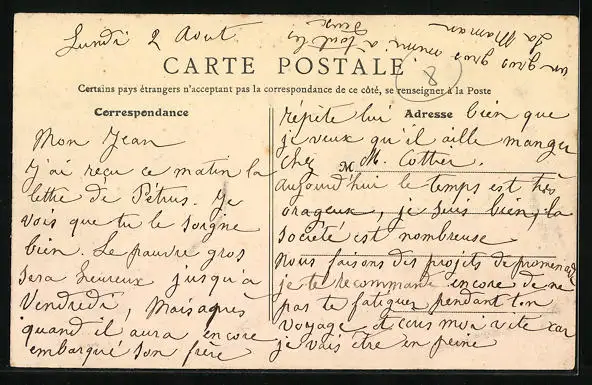 Lundi 2 Aout
un gros gros mimi à tout les
deux
La Maman
8
CARTE POSTALE
Certains pays étrangers n'acceptant pas la correspondance de ce côté, se renseigner à la Poste
Correspondance
Mon Jean
J'ai reçu ce matin la
lettre de Pétrus. Je
vois que tu le soigne
bien. Le pauvre gros
sera heureux jusqu'à
Vendredi, Mais après
quand il aura encore
embarqué son frère
Adresse
répète lui bien que
je veux qu'il aille manger
chez M. Cottier.
M
aujourd'hui le temps est très
orageux, je suis bien, la
société est nombreuse
nous faisons des projets de promenade
je te recommande encore de ne
pas te fatiguer pendant ton
voyage et écris moi vite car
je vais être en peine